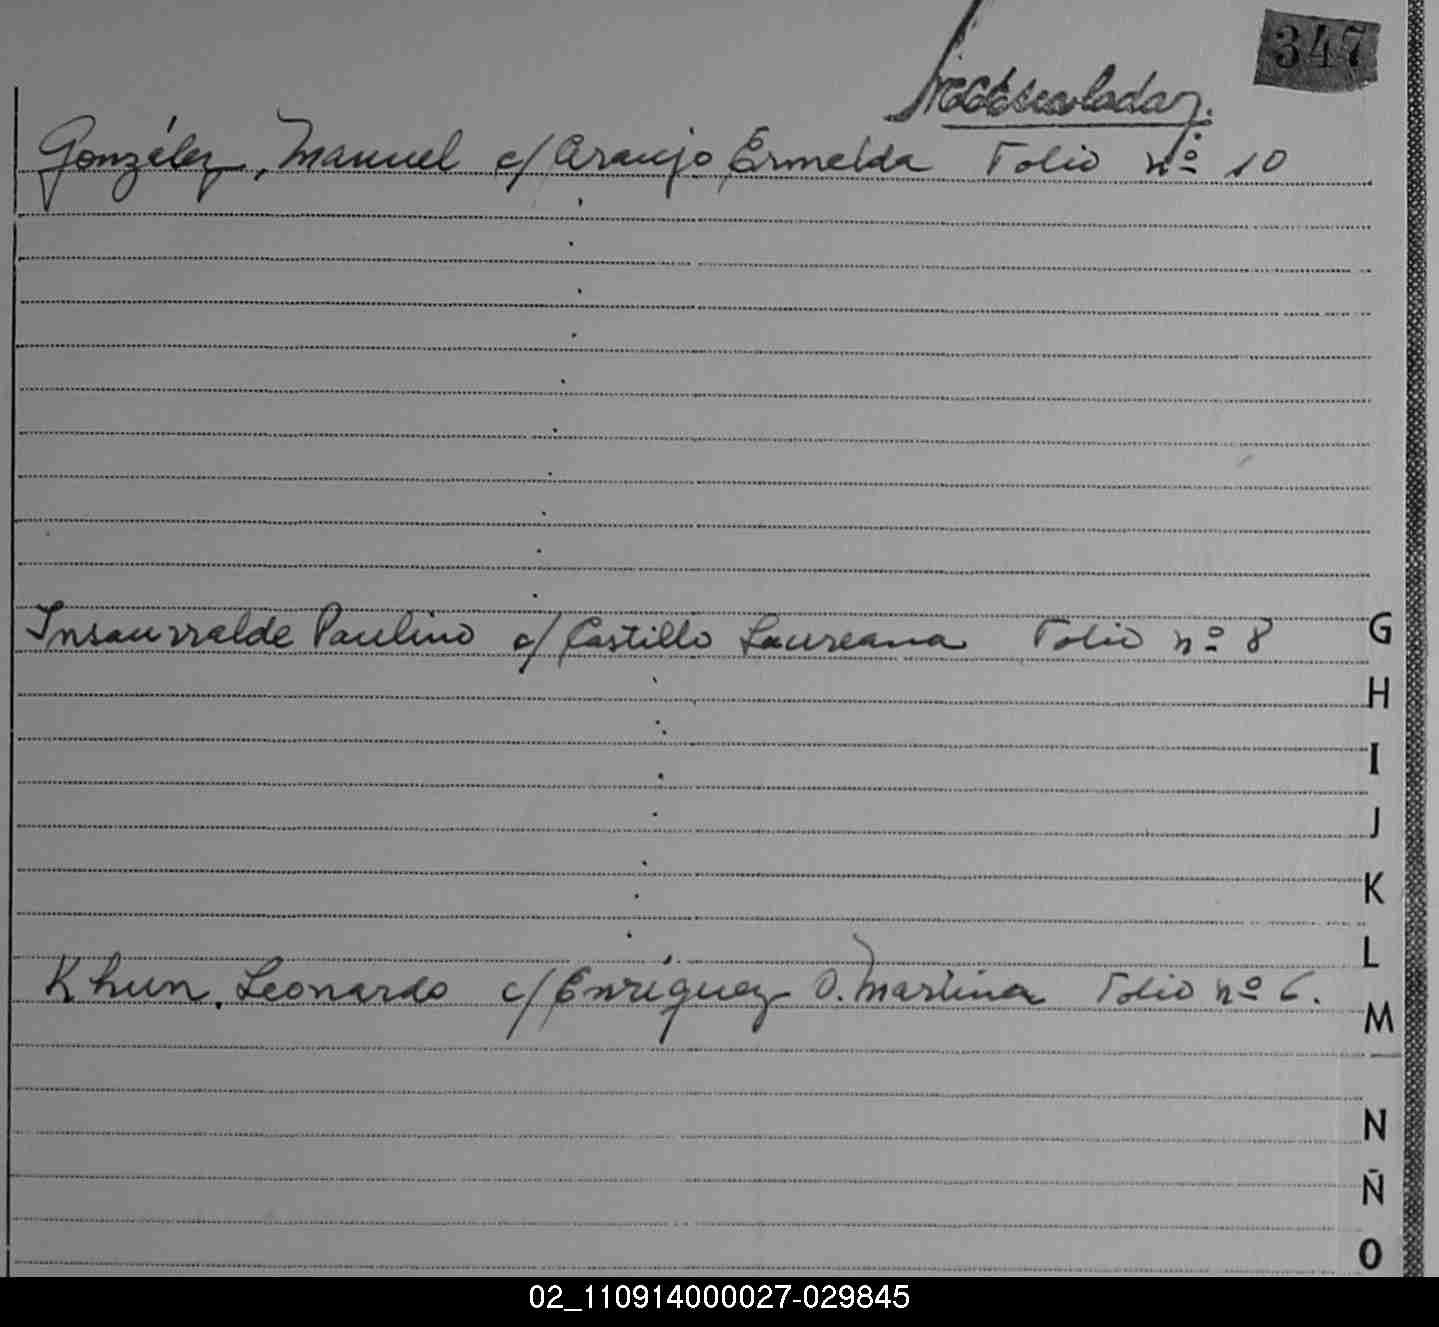 347
González, Manuel c/ Araujo Ermelda Folio nº 10
Insaurralde Paulino c/ Castillo Laureana Folio nº 8
G
H
I
J
K
L
Khun, Leonardo c/ Enríquez D. Martina Folio nº 6.
M
N
Ñ
O
02_110914000027-029845